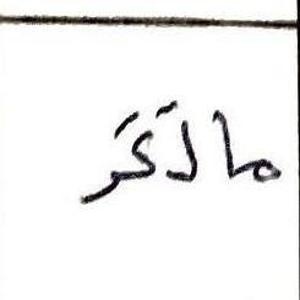 ما ذكر